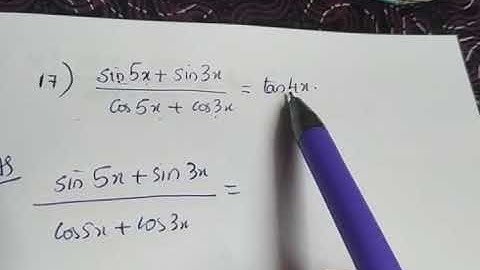 17) sin 5x + sin 3x / cos 5x + cos 3x = tan 4x.
sin 5x + sin 3x / cos 5x + cos 3x =